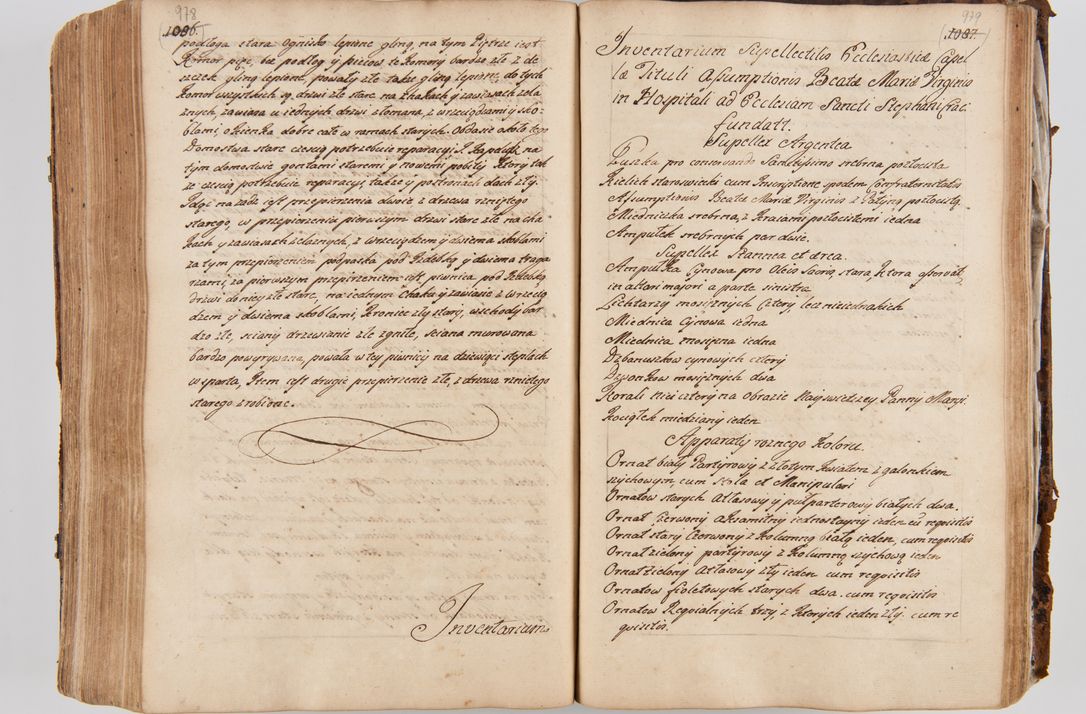 978
1086.
podłoga stara Ognisko lepione gliną, na tym Piętrze jest
Komor pięc, bez podłog y piecow te Komory bardzo złe z de
szczek gliną lepione, powały złe także gliną lepione, do tych
Komor wszystkich są drzwi złe stare na hakach y zawiasach żela
znych, zawiasa u iednych drzwi złamana, z wrzeciądzami y sko-
blami, okienka dobre całe w ramach starych. Obdasie około tego
Domostwa stare cięszą potrzebuie reparacyi
tym domostwie gontami staremi y nowemi pobity, Ktory tak
ze cięszą potrzebuie reparacyi, także y po stronach dach zły.
Idąc na zad est przepierzenia dwoie z drzewa rżniętego
starego, w przepierzeniu pierwszym drzwi stare złe na ha
kach y zawiasach żelaznych, z wrzeciądzem y dwiema skoblami
za tym przepierzeniem podpaska pod Izdebką y dwiema traga
rzami, za pierwszym przepierzeniem est piwnica pod Izdebką
drzwi do niey złe stare, na iednym haku y zawiasie z wrzecią
dzem y dwiema skoblami, Kroniec zły stary, wschody bar
dzo złe, sciany drzewiane złe zgniłe, sciana murowana
bardzo powygrywana, powała w tey piwnicy na dziewiąci stęplach
wsparta, Item est drugie przepierzenie złe, z drzewa rżniętego
starego zrobione.
Inventarium
979
1087
Inventarium Supellectilis Ecclesiastica Capel
læ Tituli Assumptionis Beatæ Mariæ Virginis
in Hospitali ad Ecclesiam Sancti Stephani Crac:
fundatt.
Supellex Argentea
Puszka pro conservando Sanctissimo srebrna pozłocista
Kielich staroswiecki cum Inscriptione spodem Confraternitatis
Assumptionis Beatæ Mariæ Virginis z Patyną pozłocistą
Miedniczka srebrna, z Krasami pozłocistemi iedna
Ampułek srebrnych par dwie.
Supellex Stannea et ærea.
Ampułka Cynowa pro Oleis Sacris, stara, Ktora asservat
in altari majori a parte sinistra
Lichtarzy mosiężnych Cztery, lecz nieiednakich
Miednica Cynowa iedna
Miednica mosiężna iedna
Dzbanuszkow cynowych cztery
Dzwonkow mosiężnych dwa
Korali nici cztery na Obrazie Nayswiętszey Panny Maryi
Kociołek miedziany ieden
Apparaty roznego Koloru.
Ornat biały Partyrowy z złotym kwiatem z galonkiem
szychowym, cum Stola et Manipulari
Ornatow starych Atłasowy y pułparterowy białych dwa.
Ornat Czerwony aksamitny iednostayny ieden cū requisitis
Ornat stary Czerwony z Kolumną białą ieden, cum requisitis
Ornat zielony partyrowy z Kolumną szychową ieden
Ornat Zielony Atłasowy zły ieden cum requisitis
Ornatow fioletowych starych dwa. cum requisitis
Ornatow Requialnych trzy, z Ktorych ieden zły. cum re
quisitis.